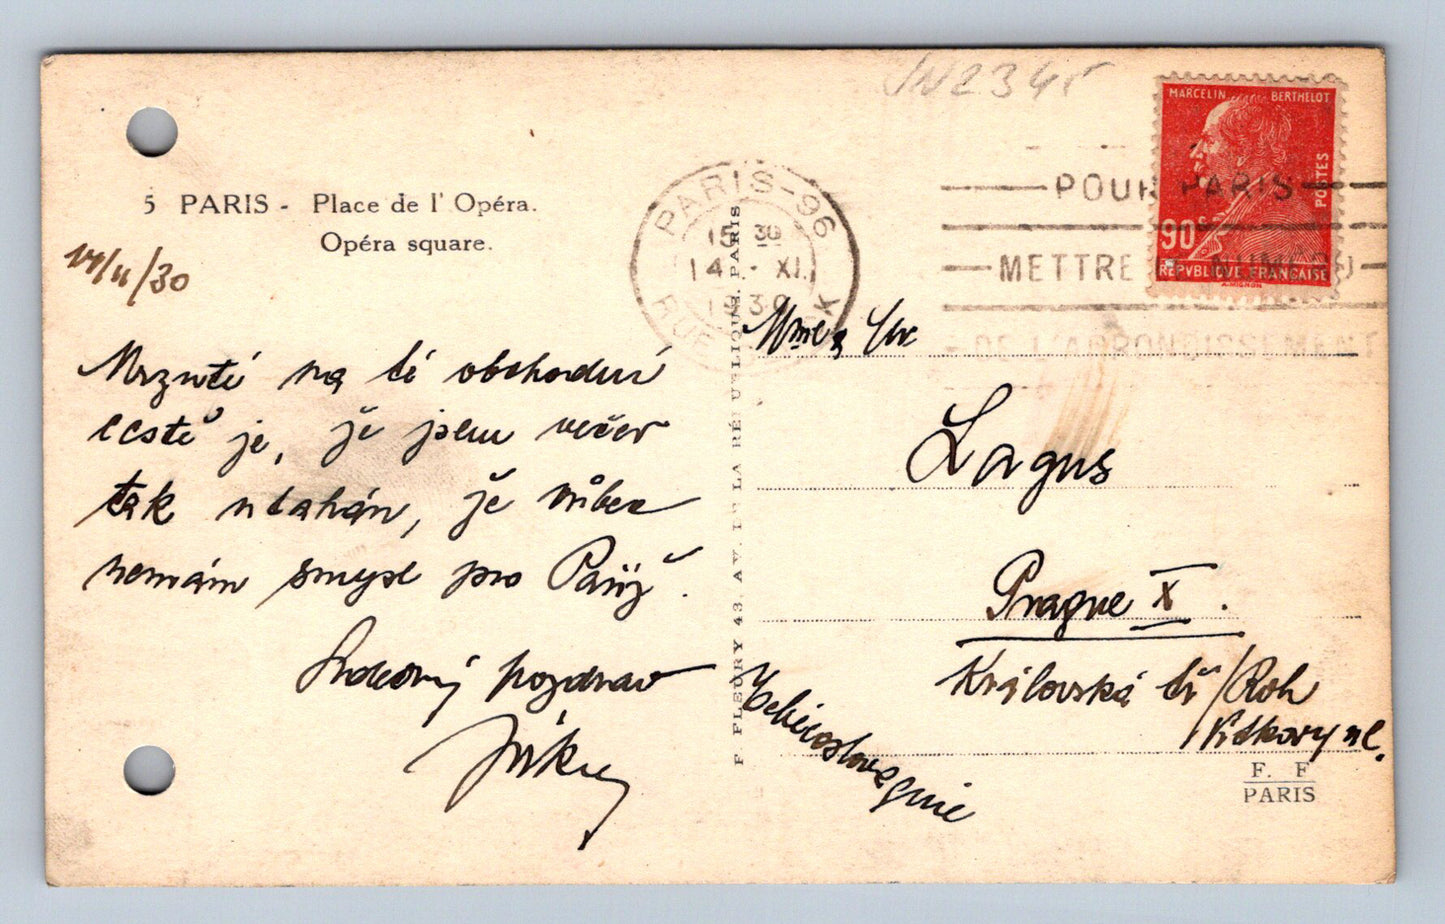 JV2345
5 PARIS - Place de l' Opéra.
Opéra square.
14/11/30
Mrzuté na té obchodní
cestě je, že jsem večer
tak utahán, že vůbec
nemám smysl pro Paříž.
Srdečný pozdrav
F FLEURY 43. AV. DE LA RÉPUBLIQUE. PARIS
PARIS-96
15 30
14 - XI.
1930
RUE
MARCELIN BERTHELOT
POSTES
90c
REPVBLIQVE FRANÇAISE
A.MIGNON
POUR PARIS
METTRE LE NUMERO
DE L'ARRONDISSEMENT
Mme & Mr
Lagus
Prague X.
Královská tř/Roh
Vítkovy ul.
Tchécoslovaquie
F. F
PARIS